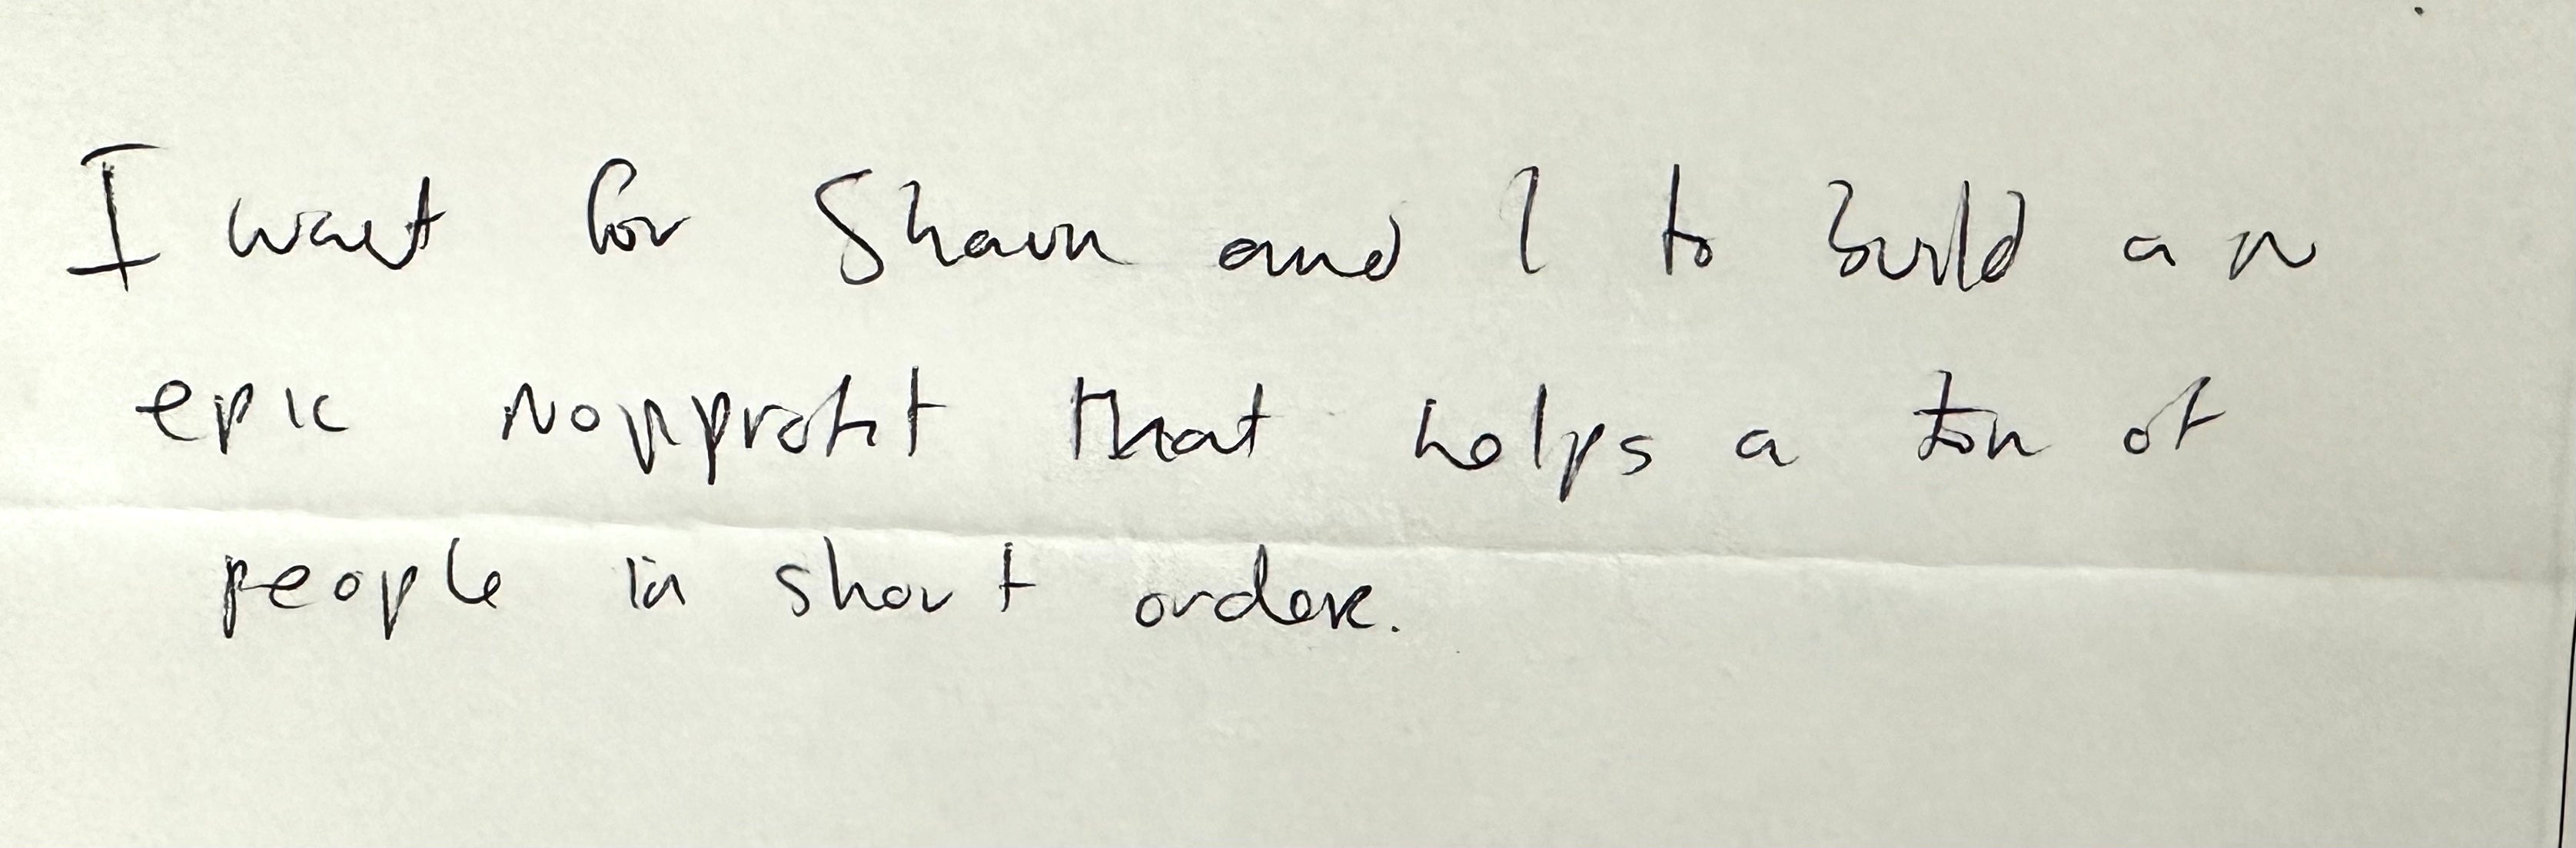 I want for Shaun and I to build an
epic nonprofit that helps a ton of
people in short order.